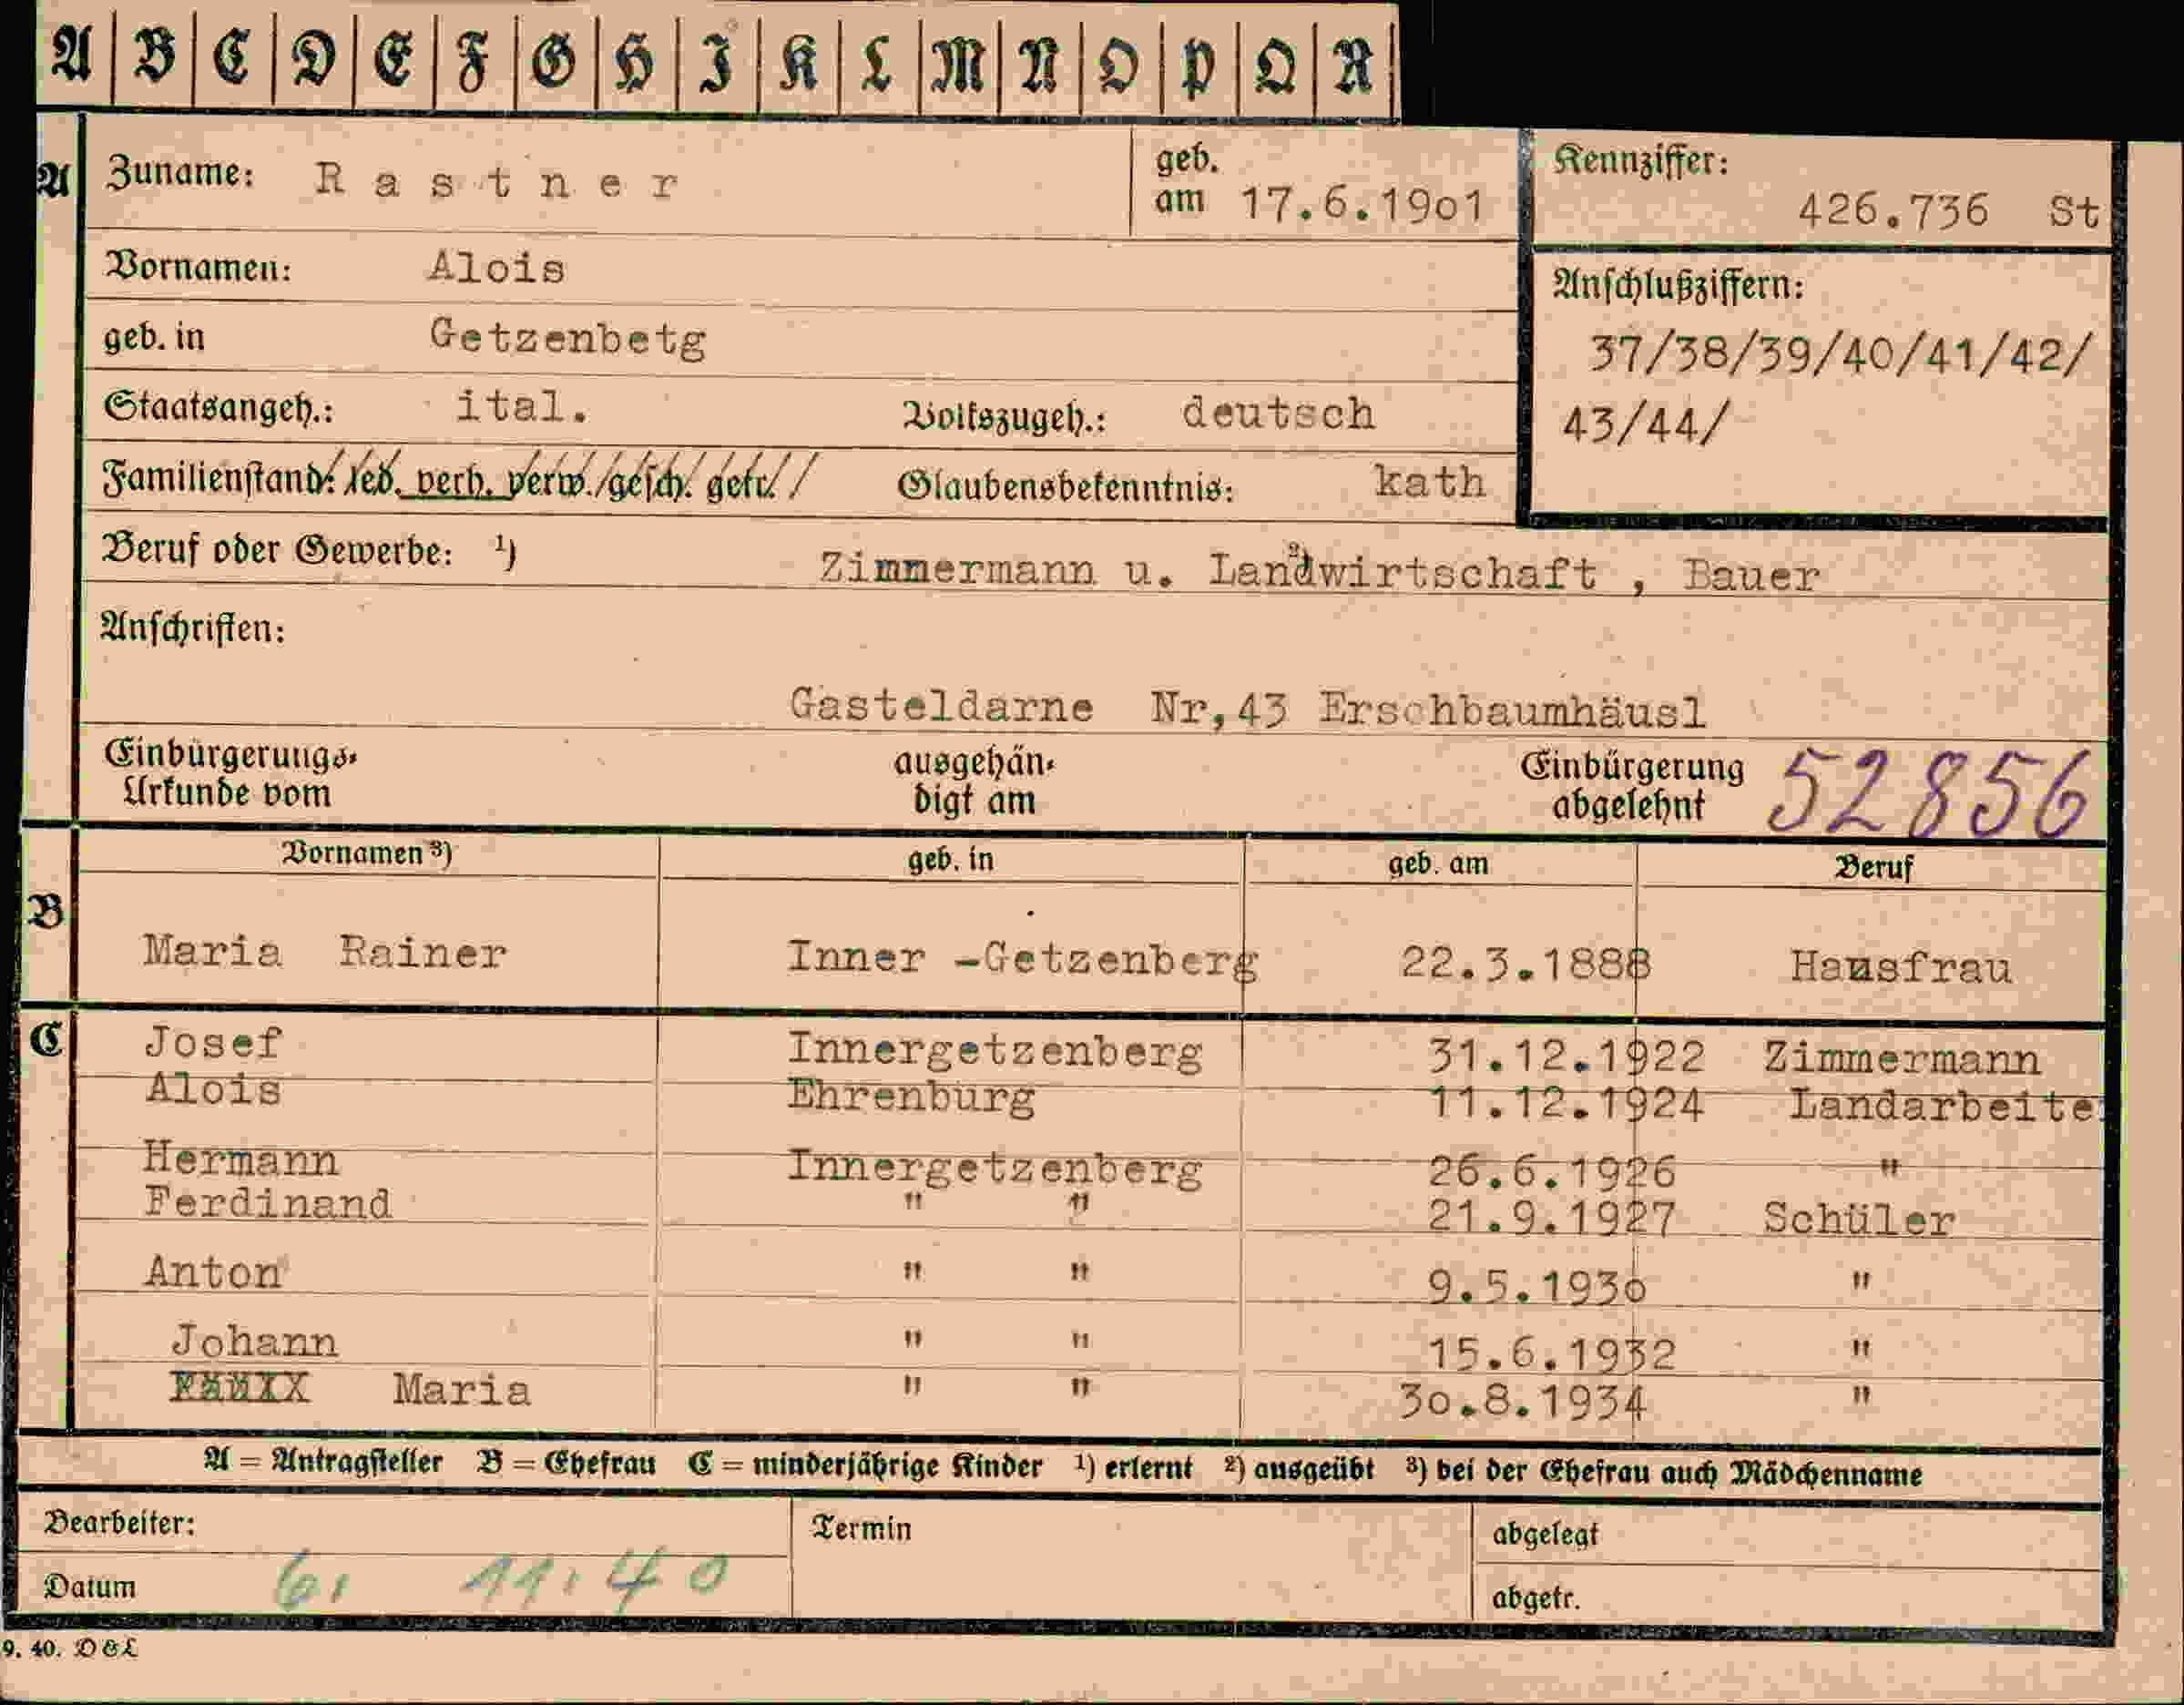 A B C D E F G H I K L M N O P Q R
A Zuname: Rastner geb. am 17.6.19o1 Kennziffer: 426.736 St
Vornamen: Alois
geb. in Getzenbetg
Anschlußziffern: 37/38/39/40/41/42/
43/44/
Staatsangeh.: ital. Volkszugeh.: deutsch
Familienstand: led. verh. verw. gesch. getr. Glaubensbekenntnis: kath
Beruf oder Gewerbe: 1) Zimmermann u. 2) Landwirtschaft , Bauer
Anschriften:
Gasteldarne Nr,43 Erschbaumhäusl
Einbürgerungs-
Urkunde vom
ausgehän-
digt am
Einbürgerung
abgelehnt
52856
Vornamen 3) geb. in geb. am Beruf
B Maria Rainer Inner -Getzenberg 22.3.1888 Hausfrau
C Josef Innergetzenberg 31.12.1922 Zimmermann
Alois Ehrenburg 11.12.1924 Landarbeite
Hermann Innergetzenberg 26.6.1926 "
Ferdinand " " 21.9.1927 Schüler
Anton " " 9.5.193o "
Johann " " 15.6.1932 "
Maria " " 3o.8.1934 "
A = Antragsteller B = Ehefrau C = minderjährige Kinder 1) erlernt 2) ausgeübt 3) bei der Ehefrau auch Mädchenname
Bearbeiter: Termin abgelegt
Datum 6. 11. 40 abgetr.
9. 40. D&L